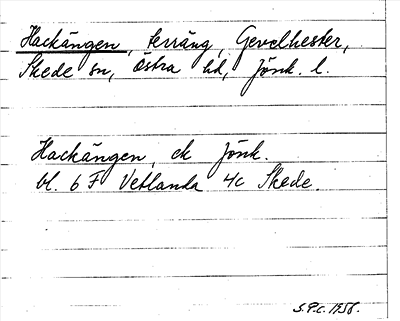 Hackängen, terräng, Gevelhester,
Skede sn, Östra hd, Jönk. l.
Hackängen, ek Jönk.
bl. 6 F Vetlanda 4c Skede.
S.P.C. 1956.